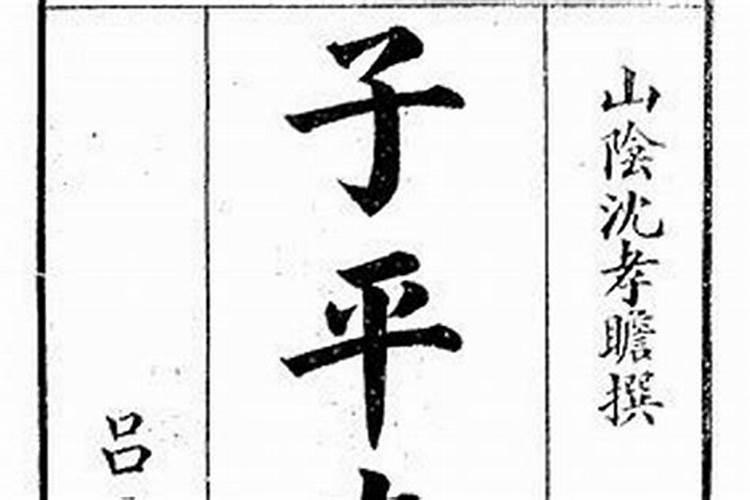 山陰沈孝瞻撰
子平
呂